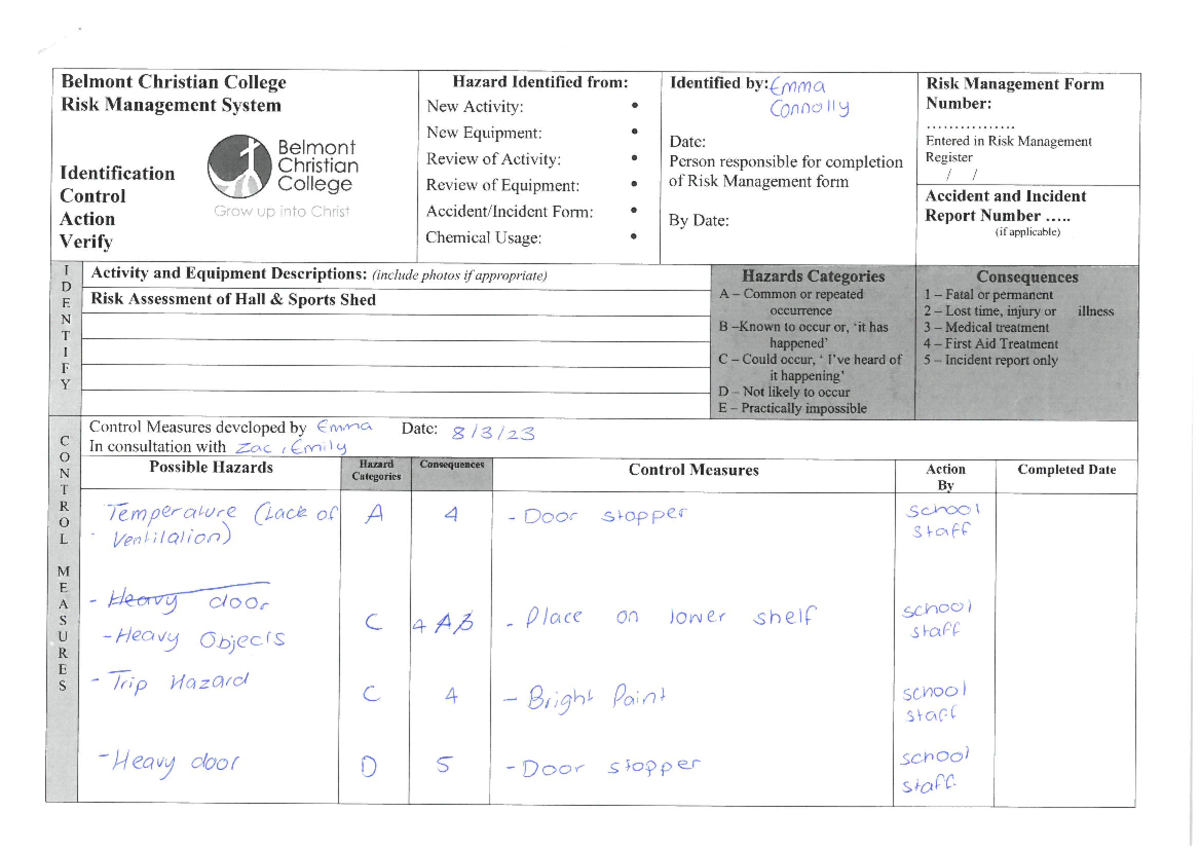 Belmont Christian College
Risk Management System
Identification
Control
Action
Verify
Belmont
Christian
College
Grow up into Christ
Hazard Identified from:
New Activity: •
New Equipment: •
Review of Activity: •
Review of Equipment: •
Accident/Incident Form: •
Chemical Usage: •
Identified by: Emma
Connolly
Date:
Person responsible for completion
of Risk Management form
By Date:
Risk Management Form
Number:
...............
Entered in Risk Management
Register
/ /
Accident and Incident
Report Number .....
(if applicable)
IDENTIFY
Activity and Equipment Descriptions: (include photos if appropriate)
Risk Assessment of Hall & Sports Shed
Hazards Categories
A – Common or repeated
occurrence
B –Known to occur or, ‘it has
happened’
C – Could occur, ‘ I’ve heard of
it happening’
D – Not likely to occur
E – Practically impossible
Consequences
1 – Fatal or permanent
2 – Lost time, injury or illness
3 – Medical treatment
4 – First Aid Treatment
5 – Incident report only
CONTROL MEASURES
Control Measures developed by Emma Date: 8/3/23
In consultation with Zac, Emily
Possible Hazards Hazard Categories Consequences Control Measures Action By Completed Date
Temperature (Lack of A 4 - Door stopper school
Ventilation) staff
- Heavy door
- Heavy Objects C 4 AB - Place on lower shelf school
staff
- Trip Hazard C 4 - Bright Paint school
staff
- Heavy door D 5 - Door stopper school
staff